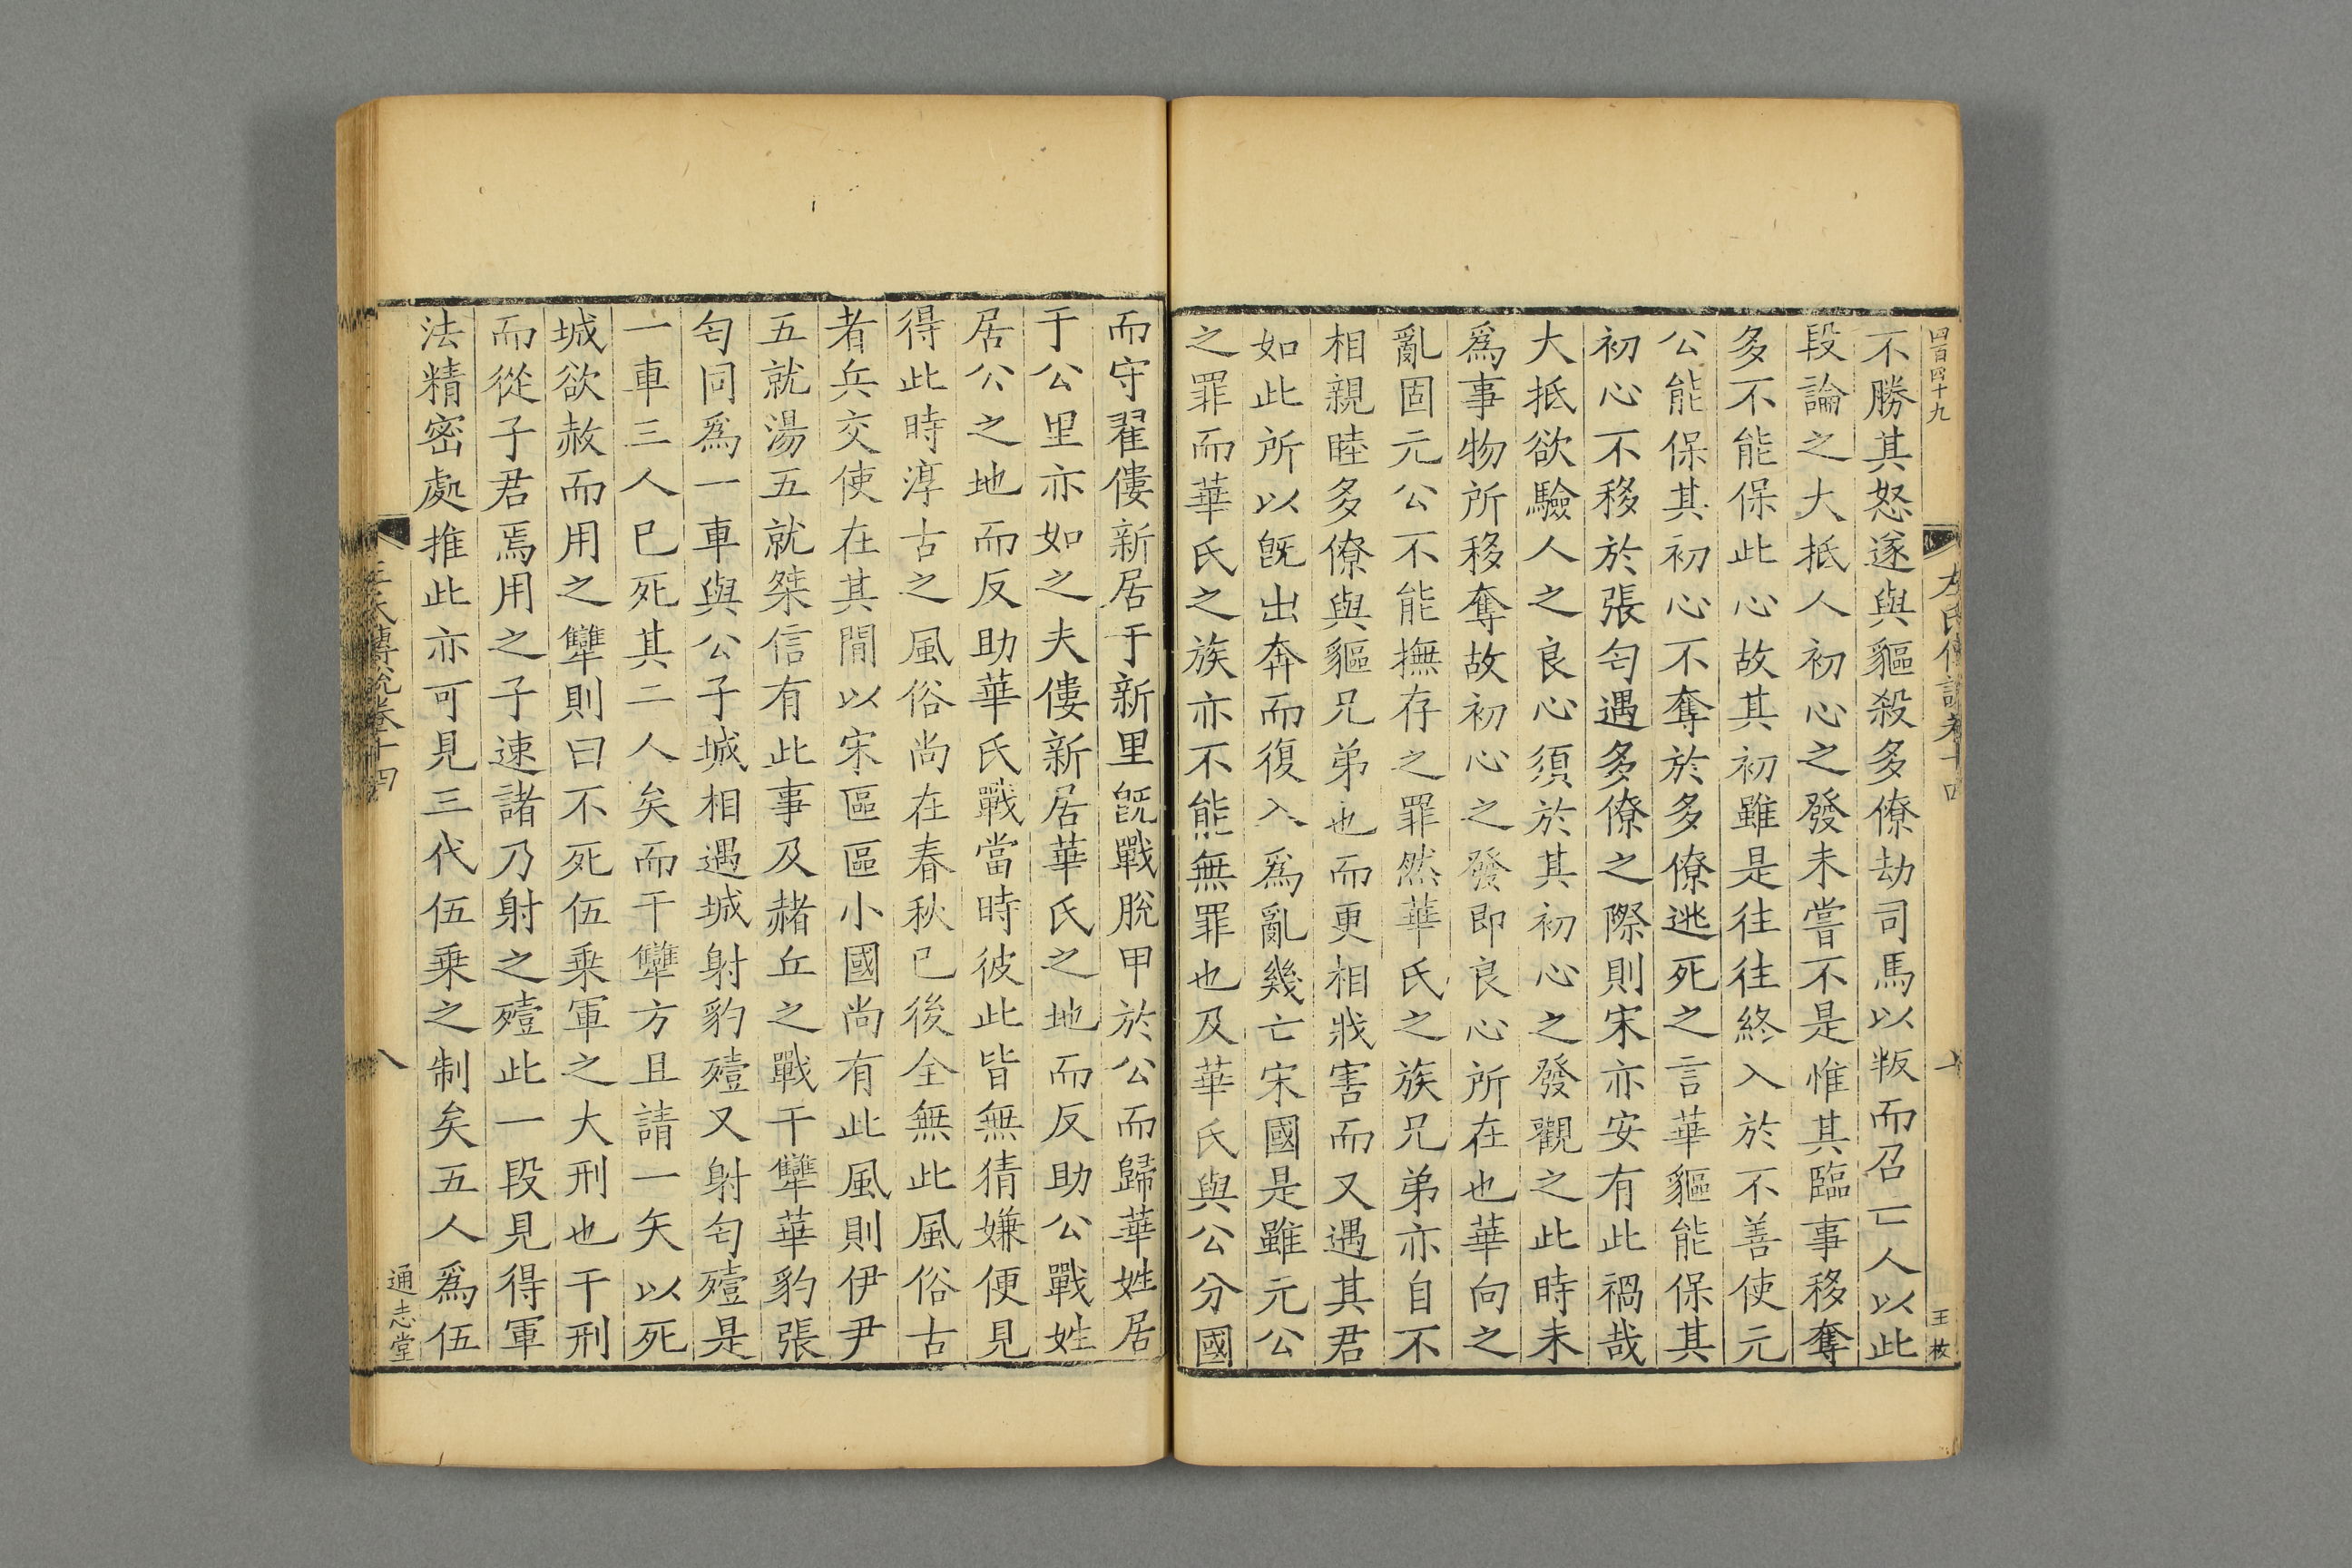 四百四十九
左氏傳說卷十四
七
王枚
不勝其怒遂與貙殺多僚劫司馬以叛而召亡人以此
段論之大抵人初心之發未嘗不是惟其臨事移奪
多不能保此心故其初雖是往往終入於不善使元
公能保其初心不奪於多僚逃死之言華貙能保其
初心不移於張匄遇多僚之際則宋亦安有此禍哉
大抵欲驗人之良心須於其初心之發觀之此時未
爲事物所移奪故初心之發即良心所在也華向之
亂固元公不能撫存之罪然華氏之族兄弟亦自不
相親睦多僚與貙兄弟也而更相戕害而又遇其君
如此所以旣出奔而復入爲亂幾亡宋國是雖元公
之罪而華氏之族亦不能無罪也及華氏與公分國
而守翟僂新居于新里旣戰脫甲於公而歸華姓居
于公里亦如之夫僂新居華氏之地而反助公戰姓
居公之地而反助華氏戰當時彼此皆無猜嫌便見
得此時淳古之風俗尚在春秋已後全無此風俗古
者兵交使在其閒以宋區區小國尚有此風則伊尹
五就湯五就桀信有此事及赭丘之戰干犫華豹張
匄同爲一車與公子城相遇城射豹殪又射匄殪是
一車三人已死其二人矣而干犫方且請一矢以死
城欲赦而用之犫則曰不死伍乘軍之大刑也干刑
而從子君焉用之子速諸乃射之殪此一段見得軍
法精密處推此亦可見三代伍乘之制矣五人爲伍
左氏傳說卷十四
八
通志堂